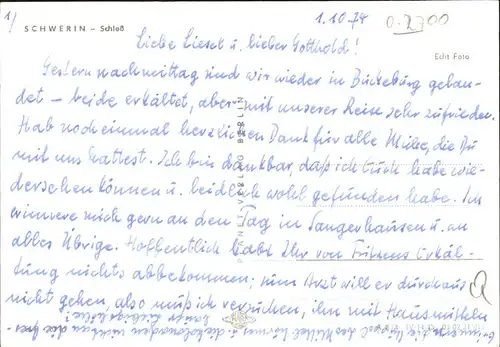 1/
1.10.74
0.2700
SCHWERIN – Schloß
Echt Foto
Liebe Liesel u. lieber Gotthold!
Gestern nachmittag sind wir wieder in Bückeburg gelan-
det – beide erkältet, aber mit unserer Reise sehr zufrieden.
Hab noch einmal herzlichen Dank für alle Mühe, die Du
mit uns hattest. Ich bin dankbar, daß ich Euch habe wie-
dersehen können u. beidlich wohl gefunden habe. Ich
erinnere mich gern an den Tag in Sangerhausen u. an
alles Übrige. Hoffentlich habt Ihr von Frikens Erkäl-
tung nichts abbekommen; zum Arzt will er durchaus
nicht gehen, also muß ich versuchen, ihn mit Hausmitteln
VERLAG BERLIN